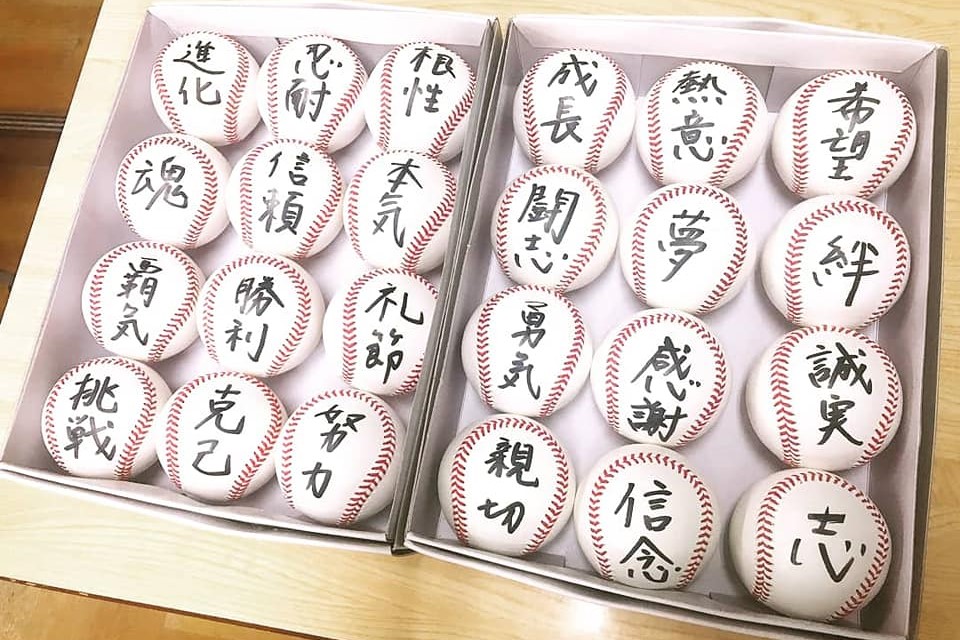 進化
忍耐
根性
魂
信頼
本気
覇気
勝利
礼節
挑戦
克己
努力
成長
熱意
希望
闘志
夢
絆
勇気
感謝
誠実
親切
信念
志